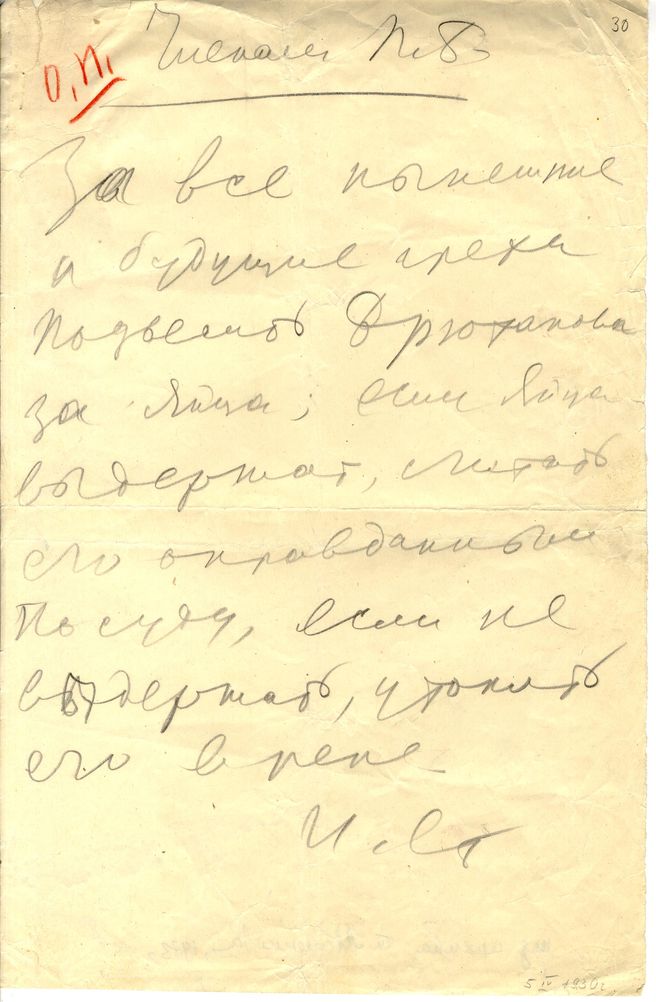 30
О.П.
Членам П.Б.
За все нынешние
и будущие грехи
подвесить Брюханова
за яйца; если яйца
выдержат, считать
его оправданным
по суду, если не
выдержат, утопить
его в реке
И. Ст
5 IV 1930 г.